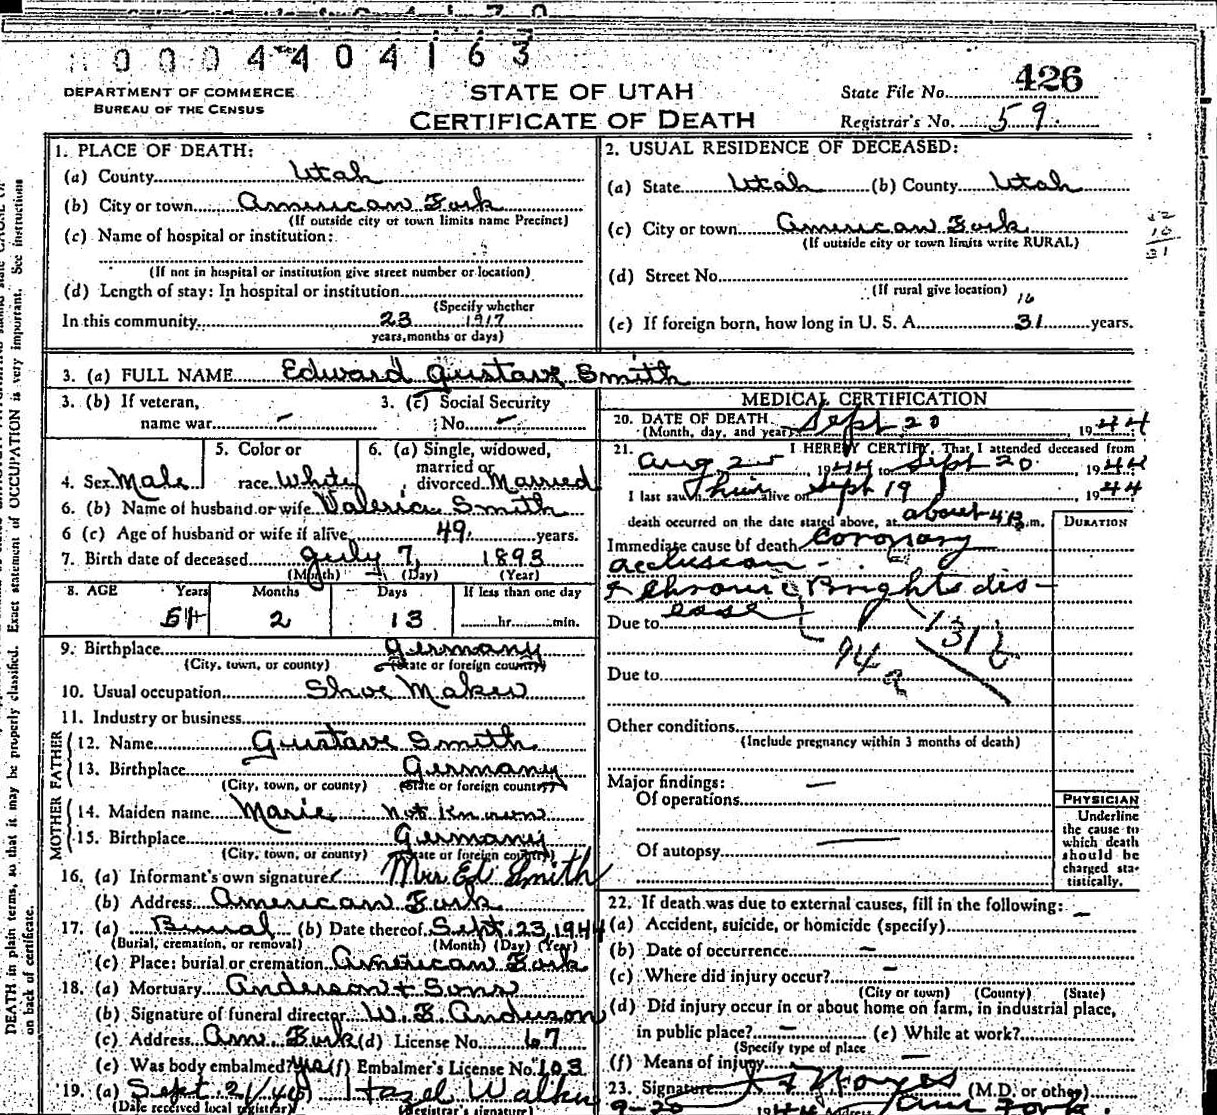 0004404163
DEPARTMENT OF COMMERCE
BUREAU OF THE CENSUS
STATE OF UTAH
CERTIFICATE OF DEATH
State File No. 426
Registrar's No. 59
1. PLACE OF DEATH:
(a) County Utah
(b) City or town American Fork
(If outside city or town limits name Precinct)
(c) Name of hospital or institution:
(If not in hospital or institution give street number or location)
(d) Length of stay: In hospital or institution
(Specify whether
In this community 23 1917
years, months or days)
2. USUAL RESIDENCE OF DECEASED:
(a) State Utah (b) County Utah
(c) City or town American Fork
(If outside city or town limits write RURAL)
(d) Street No.
(If rural give location) 16
(e) If foreign born, how long in U. S. A. 31 years.
3. (a) FULL NAME Edward Gustave Smith
3. (b) If veteran, 3. (c) Social Security
name war - No. -
4. Sex Male 5. Color or race White 6. (a) Single, widowed, married or divorced Married
6. (b) Name of husband or wife Valeria Smith
6 (c) Age of husband or wife if alive 49 years.
7. Birth date of deceased July 7, 1893
(Month) (Day) (Year)
8. AGE Years Months Days If less than one day
51 2 13 hr. min.
9. Birthplace Germany
(City, town, or county) (State or foreign country)
10. Usual occupation Shoe Maker
11. Industry or business
FATHER
12. Name Gustave Smith
13. Birthplace Germany
(City, town, or county) (State or foreign country)
MOTHER
14. Maiden name Marie not known
15. Birthplace Germany
(City, town, or county) (State or foreign country)
16. (a) Informant's own signature Mrs Ed Smith
(b) Address American Fork
17. (a) Burial (b) Date thereof Sept. 23, 1944
(Burial, cremation, or removal) (Month) (Day) (Year)
(c) Place: burial or cremation American Fork
18. (a) Mortuary Anderson & Sons
(b) Signature of funeral director W. E. Anderson
(c) Address Am. Fork (d) License No. 67
(e) Was body embalmed? yes (f) Embalmer's License No. 103
19. (a) Sept. 21/44 Hazel Walker
(Date received local registrar) (Registrar's signature)
MEDICAL CERTIFICATION
20. DATE OF DEATH Sept 20 1944
(Month, day, and year)
21. I HEREBY CERTIFY, That I attended deceased from
Aug 25 1944 to Sept 20 1944
I last saw him alive on Sept 19, 1944
death occurred on the date stated above, at about 4 m.
DURATION
Immediate cause of death Coronary
occlusion
& Chronic Brights dis-
ease
Due to
131
94 a
Due to
Other conditions
(Include pregnancy within 3 months of death)
Major findings: —
Of operations
Of autopsy —
PHYSICIAN
Underline
the cause to
which death
should be
charged sta-
tistically.
22. If death was due to external causes, fill in the following: -
(a) Accident, suicide, or homicide (specify)
(b) Date of occurrence -
(c) Where did injury occur? -
(City or town) (County) (State)
(d) Did injury occur in or about home on farm, in industrial place,
in public place? - (e) While at work?
(Specify type of place
(f) Means of injury —
23. Signature Noyes (M.D. or other)
9-20 1944 Address Am Fork
DEATH in plain terms, so that it may be properly classified. Exact statement of OCCUPATION is very important. See instructions
on back of certificate.